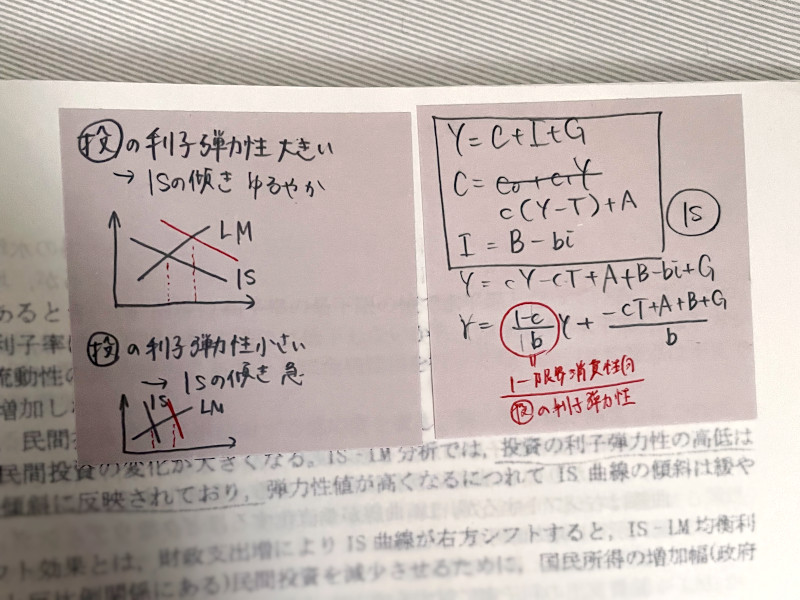 投の利子弾力性 大きい
→ ISの傾き ゆるやか
LM
IS
投の利子弾力性小さい
→ ISの傾き 急
IS
LM
Y = C+I+G
C = c₀+c₁Y
c(Y-T)+A
I = B-bi
IS
Y = cY-cT+A+B-bi+G
Y = 1-c/b Y + -cT+A+B+G/b
1-限界消費性向
投の利子弾力性
あると
利子率
流動性の
増加し
民間
民間投資の変化が大きくなる。IS-LM分析では,投資の利子弾力性の高低は
傾斜に反映されており,弾力性値が高くなるにつれてIS曲線の傾斜は緩や
フト効果とは,財政支出増によりIS曲線が右方シフトすると,IS-LM均衡利
関係にある)民間投資を減少させるために,国民所得の増加幅(政府